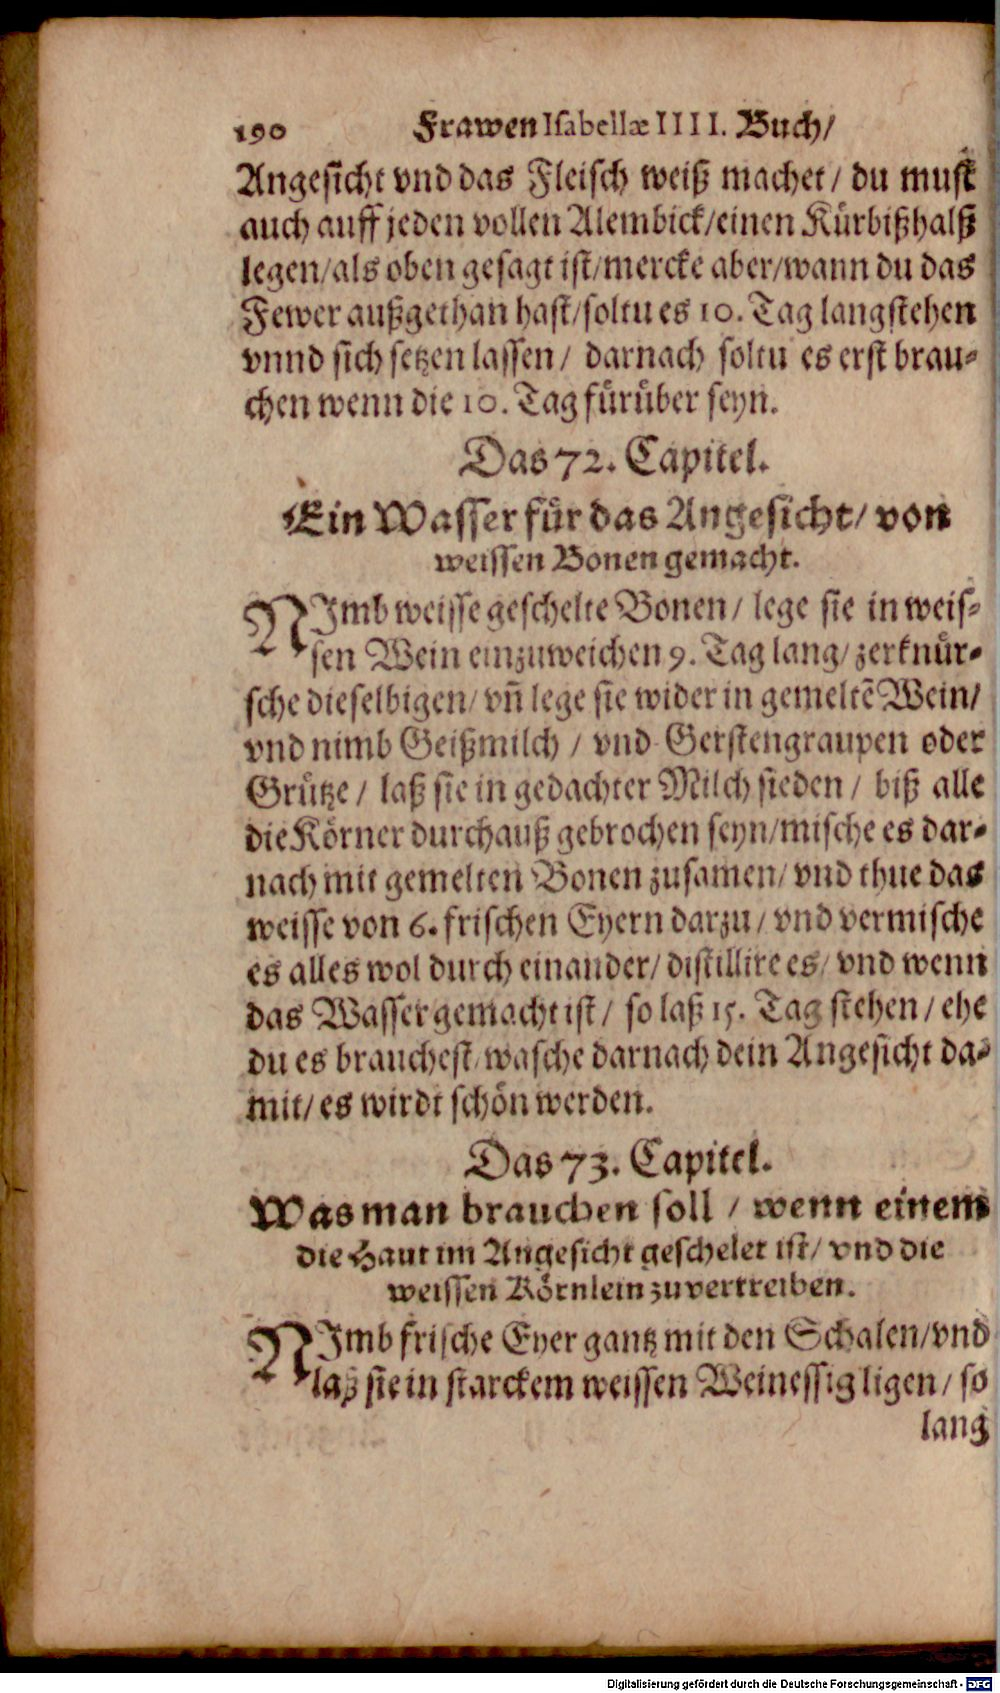 190 Frawen Isabellæ IIII. Buch/
Angesicht vnd das Fleisch weiß machet/ du must
auch auff jeden vollen Alembick/einen Kürbißhalß
legen/als oben gesagt ist/mercke aber/wann du das
Fewer außgethan hast/soltu es 10. Tag lang stehen
vnnd sich setzen lassen/ darnach soltu es erst brau-
chen wenn die 10. Tag fürüber seyn.
Das 72. Capitel.
Ein Wasser für das Angesicht/ von
weissen Bonen gemacht.
NImb weisse geschelte Bonen/ lege sie in weis-
sen Wein einzuweichen 9. Tag lang/ zerknür-
sche dieselbigen/ vñ lege sie wider in gemeltẽ Wein/
vnd nimb Geißmilch / vnd Gerstengraupen oder
Grütze/ laß sie in gedachter Milch sieden/ biß alle
die Körner durchauß gebrochen seyn/mische es dar-
nach mit gemelten Bonen zusamen/ vnd thue das
weisse von 6. frischen Eyern darzu/ vnd vermische
es alles wol durch einander/ distillire es/ vnd wenn
das Wasser gemacht ist/ so laß 15. Tag stehen/ ehe
du es brauchest/ wasche darnach dein Angesicht da-
mit/ es wirdt schön werden.
Das 73. Capitel.
Was man brauchen soll / wenn einem
die Haut im Angesicht geschelet ist/ vnd die
weissen Körnlein zuvertreiben.
NImb frische Eyer gantz mit den Schalen/vnd
laß sie in starckem weissen Weinessig ligen/ so
lang
Digitalisierung gefördert durch die Deutsche Forschungsgemeinschaft - DFG